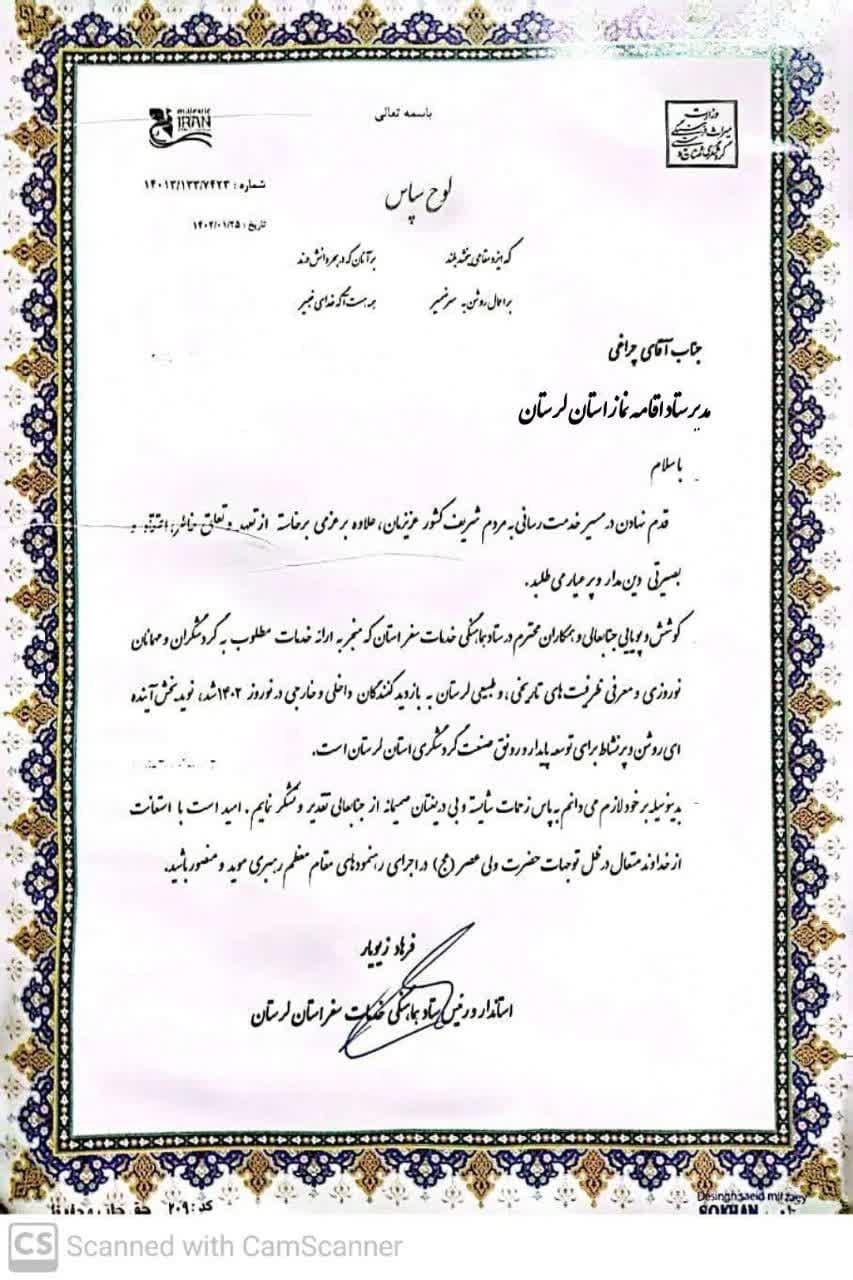 باسمه تعالی
وزارت میراث فرهنگی گردشگری و صنایع دستی
IRAN
شماره : ۱۴۰۱۳/۱۳۳/۷۴۲۳
تاریخ : ۱۴۰۲/۰۱/۲۵
لوح سپاس
که ایزد مقامی ببخشد بلند بر آنان که در بحر دانش درند
بر اعمال روشن به سر ضمیر همه هست آگه خدای خبیر
جناب آقای چراغی
مدیر ستاد اقامه نماز استان لرستان
با سلام
قدم نهادن در مسیر خدمت رسانی به مردم شریف کشور عزیزمان، علاوه بر عزمی برخاسته از تعهد و تعلق خاطر، اعتقاد و
بصیرتی دین مدار و پر عیار می طلبد .
کوشش و پویایی جنابعالی و همکاران محترم در ستاد هماهنگی خدمات سفر استان که منجر به ارائه خدمات مطلوب به گردشگران و مهمانان
نوروزی و معرفی ظرفیت های تاریخی، و طبیعی لرستان به بازدید کنندگان داخلی و خارجی در نوروز ۱۴۰۲ شد، نوید بخش آینده
ای روشن و پر نشاط برای توسعه پایدار و رونق صنعت گردشگری استان لرستان است.
بدینوسیله بر خود لازم می دانم به پاس زحمات شایسته و بی دریغتان صمیمانه از جنابعالی تقدیر و تشکر نمایم . امید است با استعانت
از خداوند متعال در ظل توجهات حضرت ولی عصر (عج) در اجرای رهنمودهای مقام معظم رهبری موید و منصور باشید.
فرهاد زیویار
استاندار و رئیس ستاد هماهنگی خدمات سفر استان لرستان
کد : ۲۰۹
Desingh:saeid mirzaey
SOKHAN
CS Scanned with CamScanner